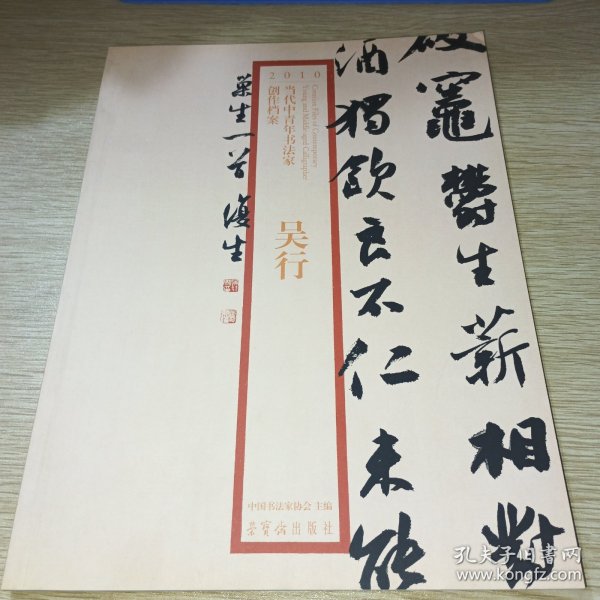 2010
当代中青年书法家
创作档案
Creation Files of Contemporary
Young and Middle-aged Calligrapher
吴行
中国书法家协会 主编
荣宝斋出版社
破灶郁生薪相对
酒独饮良不仁未能
孔夫子旧书网
www.kongfz.com